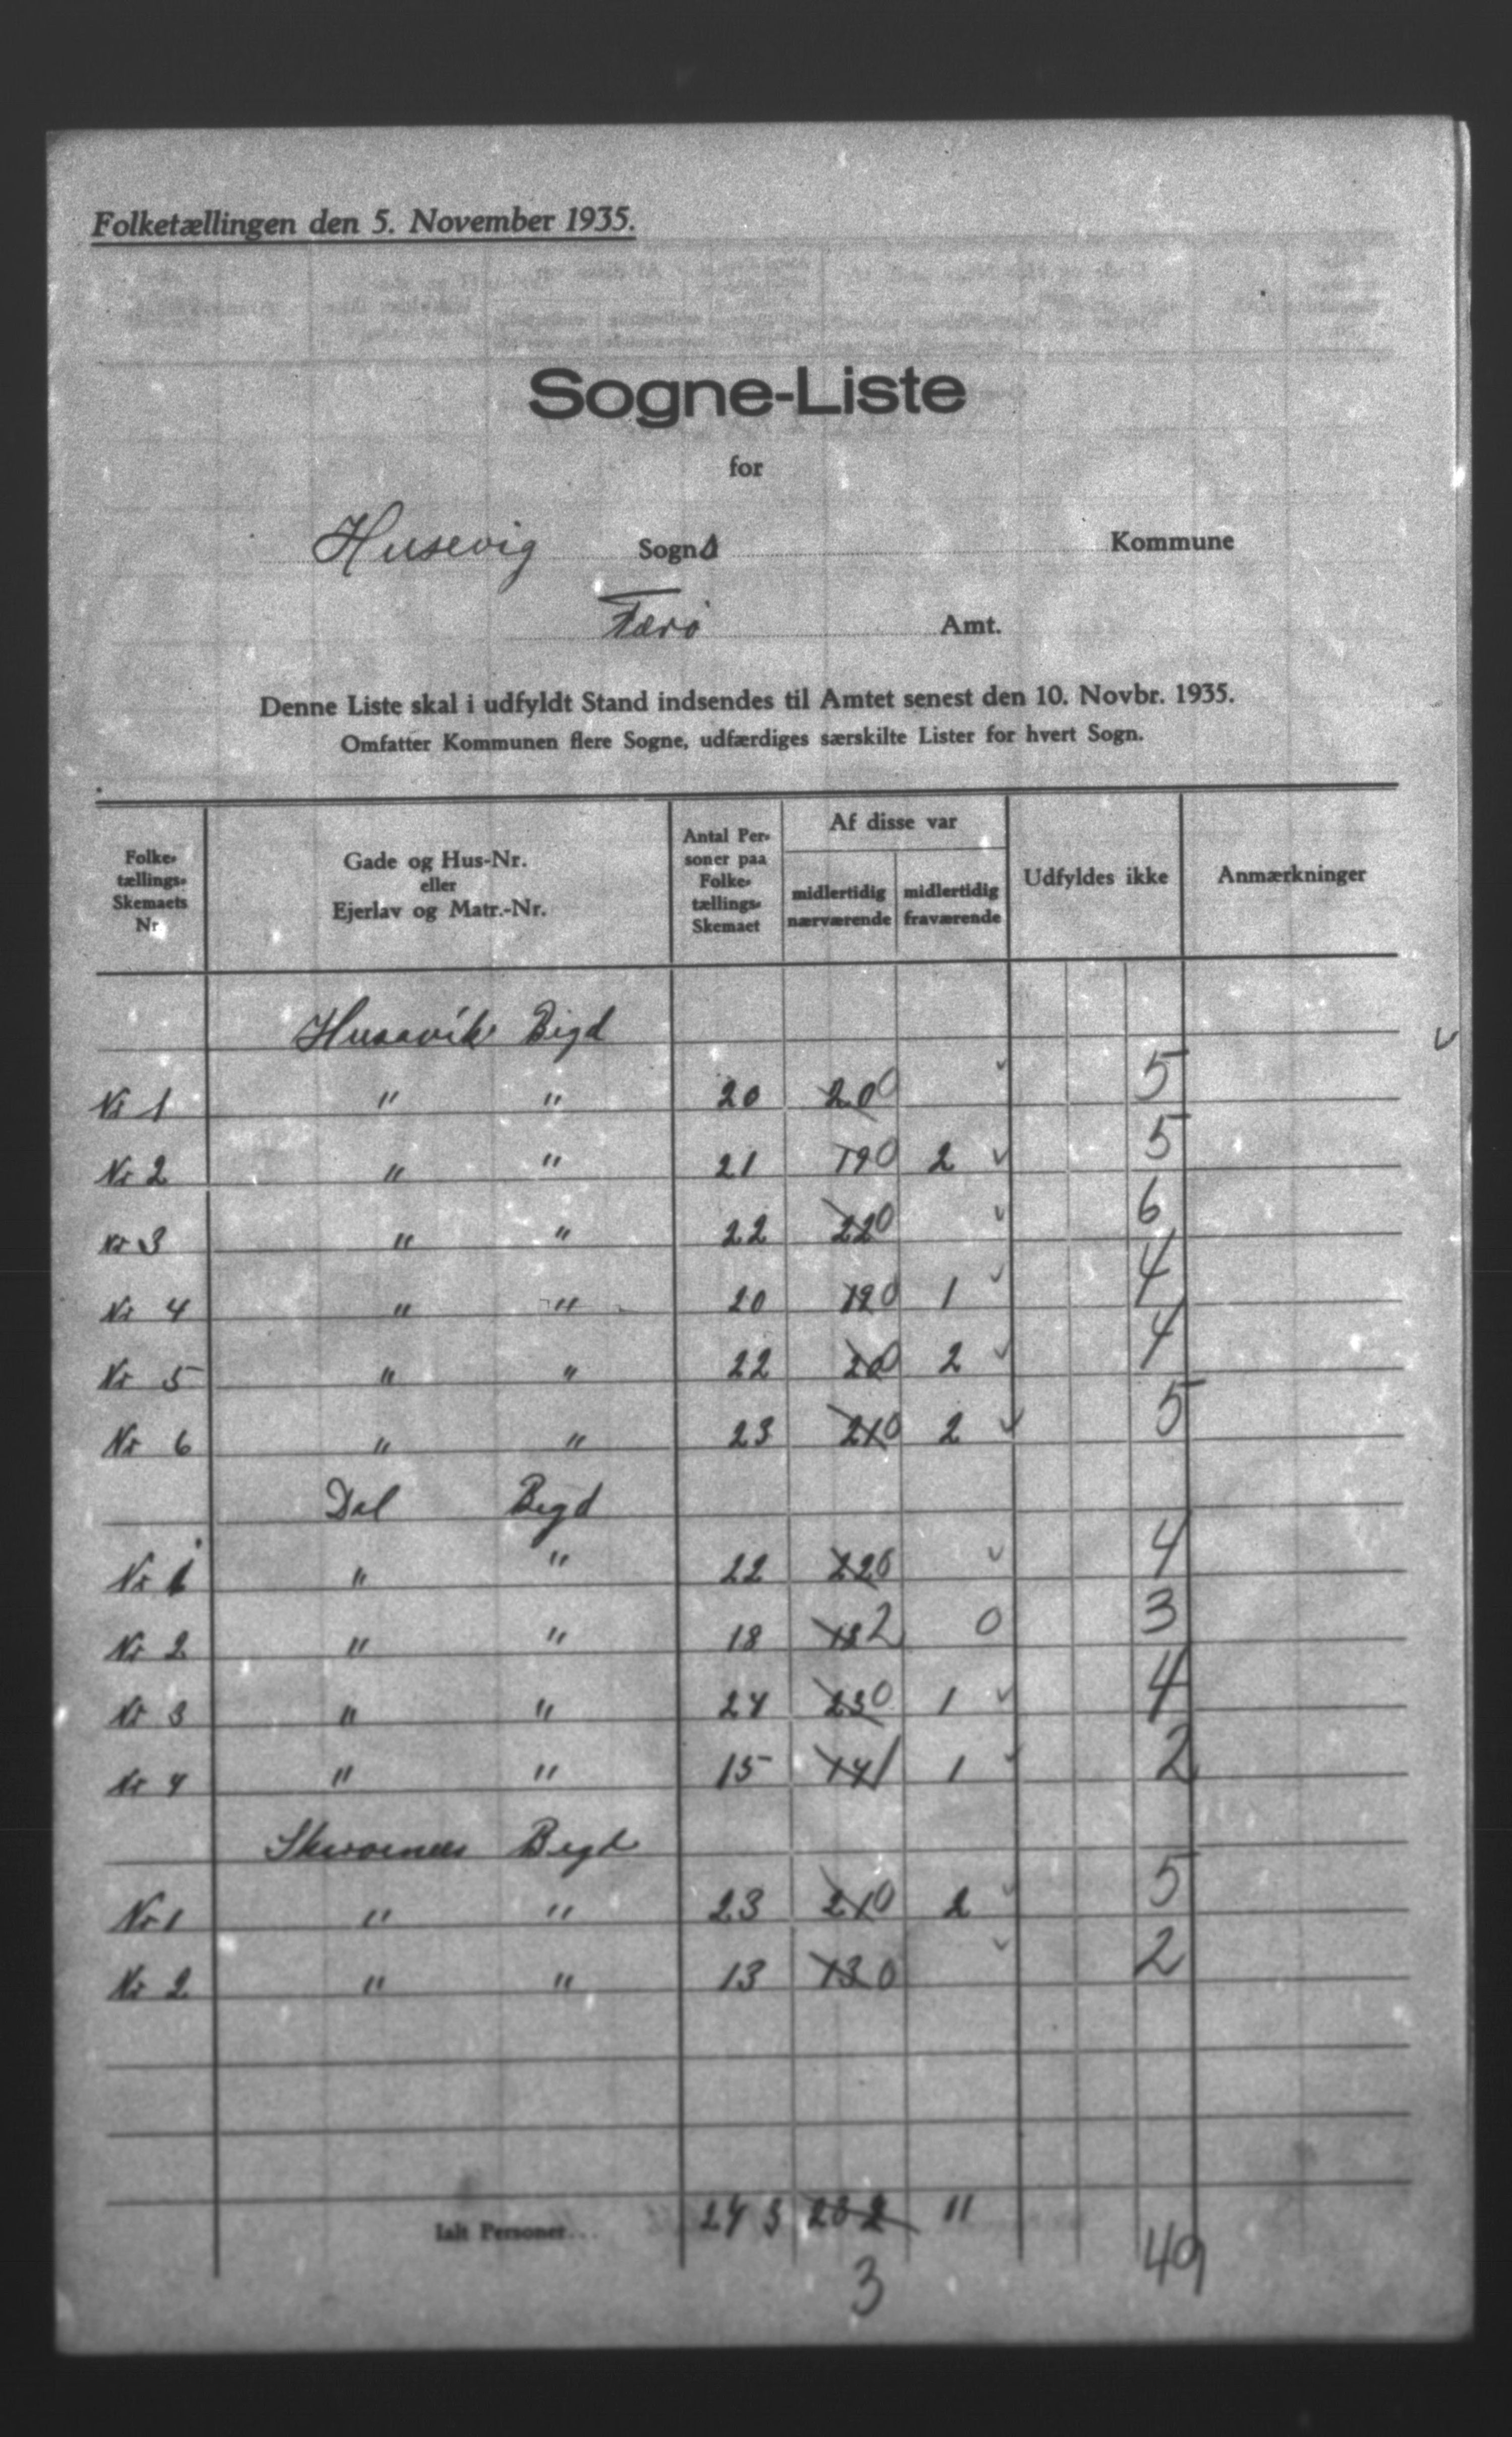 Folketællingen den 5. November 1935.
Sogne-Liste
for
Husevig Sogn Kommune
Færø Amt.
Denne Liste skal i udfyldt Stand indsendes til Amtet senest den 10. Novbr. 1935.
Omfatter Kommunen flere Sogne, udfærdiges særskilte Lister for hvert Sogn.
Folke-tællings-Skemaets Nr
Gade og Hus-Nr. eller Ejerlav og Matr.-Nr.
Antal Per-soner paa Folke-tællings-Skemaet
Af disse var
midlertidig nærværende
midlertidig fraværende
Udfyldes ikke
Anmærkninger
Husavik Bigd
Nr 1 " " 20 20 0 ✓ 5
Nr 2 " " 21 19 0 2 ✓ 5
Nr 3 " " 22 22 0 ✓ 6
Nr 4 " " 20 19 0 1 ✓ 4
Nr 5 " " 22 20 0 2 ✓ 4
Nr 6 " " 23 21 0 2 ✓ 5
Dal Bygd
Nr 1 " " 22 22 0 ✓ 4
Nr 2 " " 18 18 2 0 3
Nr 3 " " 24 23 0 1 ✓ 4
Nr 4 " " 15 14 1 1 ✓ 2
Bygd
Nr 1 " " 23 21 0 2 ✓ 5
Nr 2 " " 13 13 0 ✓ 2
Ialt Personer... 243 232 11
3 49